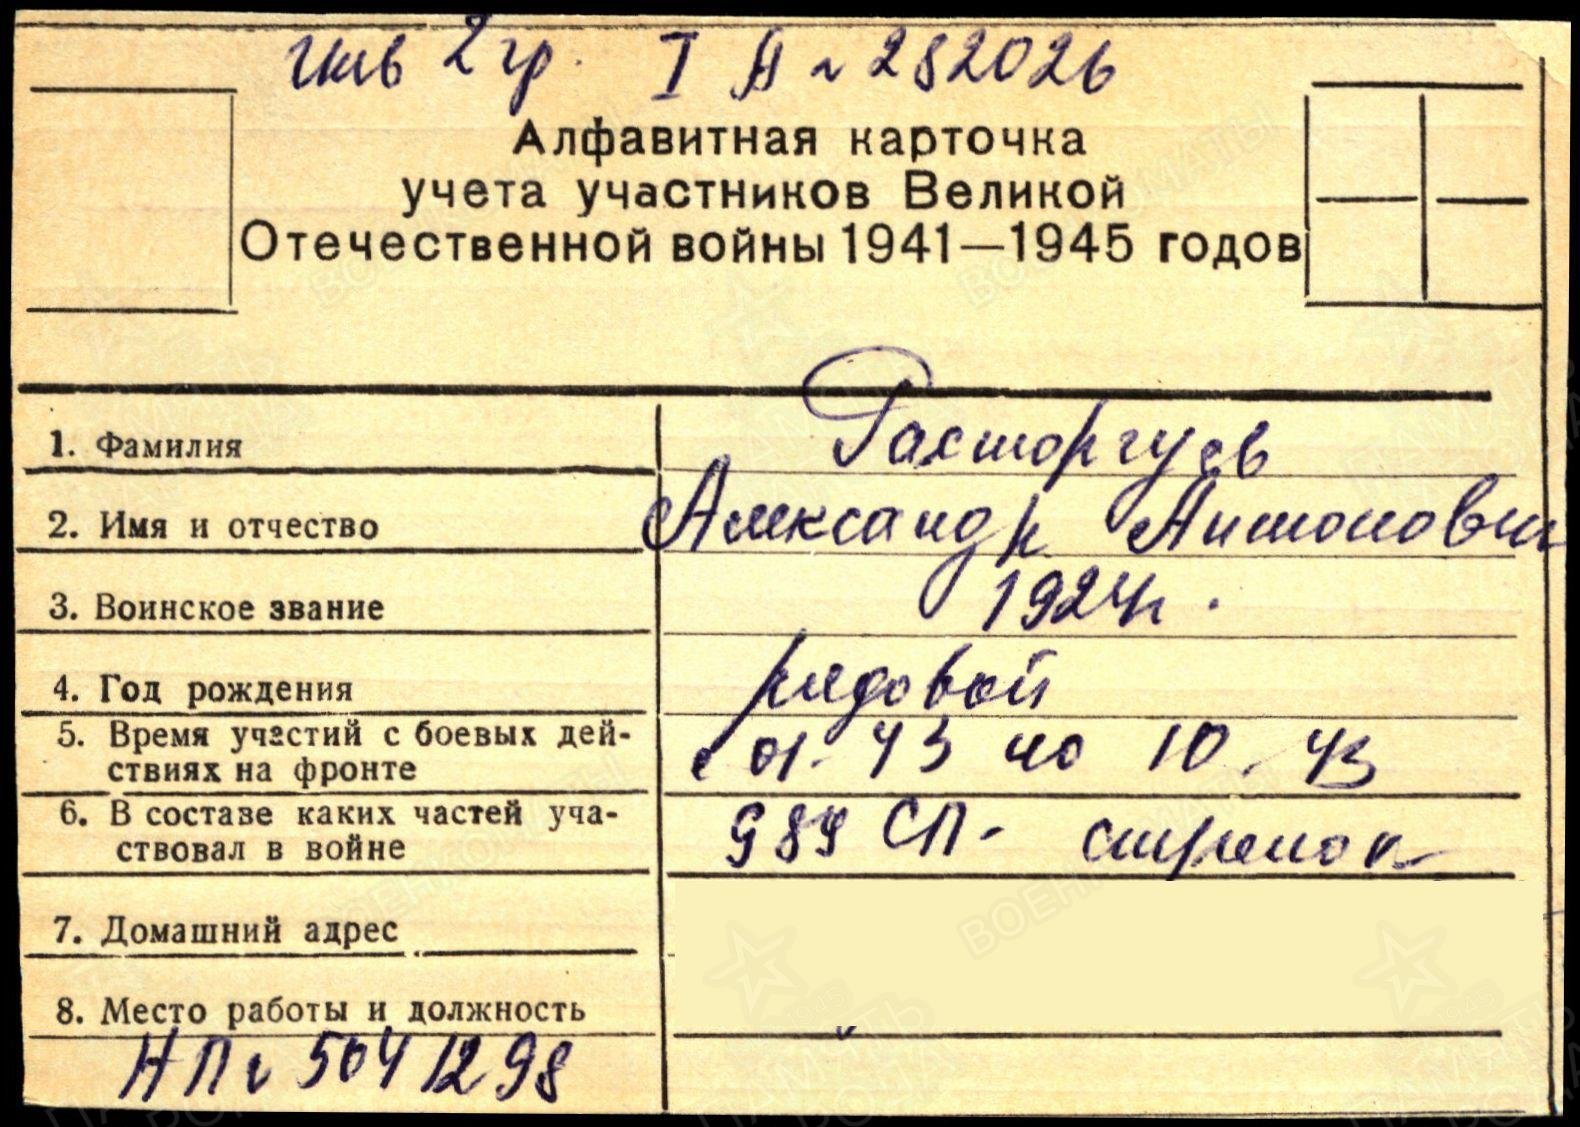 инв 2 гр. I А № 282026
Алфавитная карточка
учета участников Великой
Отечественной войны 1941—1945 годов
1. Фамилия Расторгуев
2. Имя и отчество Александр Антонович
3. Воинское звание 1924г.
4. Год рождения рядовой
5. Время участий с боевых дей-
ствиях на фронте с 01. 43 по 10. 43
6. В составе каких частей уча-
ствовал в войне 989 СП - стрелок
7. Домашний адрес
8. Место работы и должность
НП № 5041298